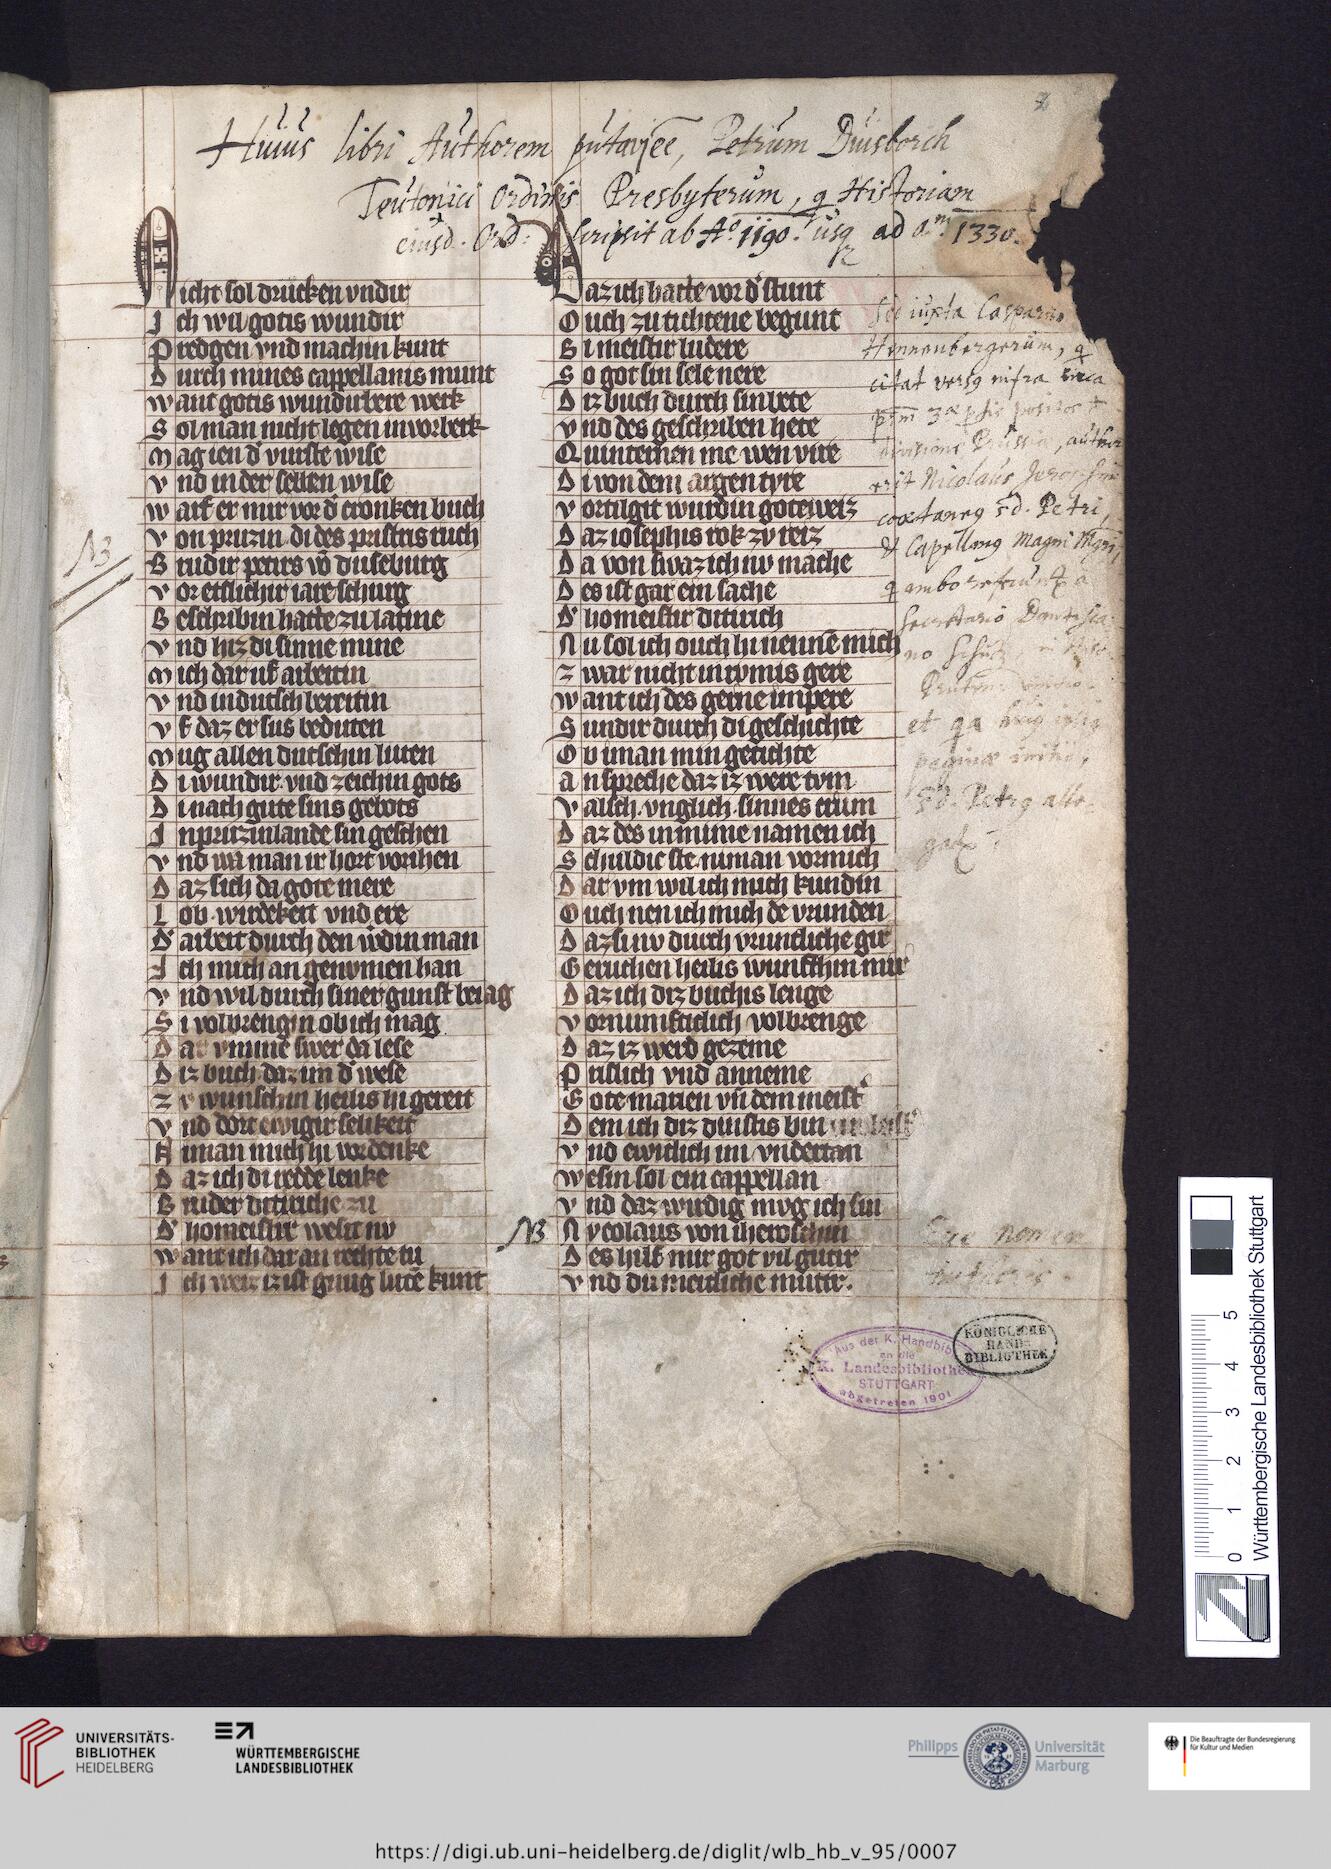 Huius libri Authorem putavere, Petrum Duisborch
Teutonici Ordinis Presbyterum, q Historiam
eiusd. Ord. scripsit ab Aº. 1190. usq ad a.m 1330.
Nicht sol drucken vndir
Ich wil gotis wundir
Predgen vnd machin kunt
Durch mines cappellanis munt
want gotis wundirbere werk
Sol man nicht legen in vorberk
mag ien d' vurste wise
vnd in der selben wise
warf er mir vor d' cronken buch
von pruzin di des pristris ruch
Brudir petirs vō duseburg
vor etslichir iare schurg
Beschribin hatte zu latine
vnd hiz di sinne mine
mich dar uf arbeitin
vnd in dutsch bereitin
vf daz er sus beduten
mug allen dutschin luten
Di wundir vnd zeichin gots
Di nach gute sins gebots
In pruzinlande sin geschen
vnd wā man ir hort voriihen
Daz sich da gote mere
Lob wirdekeit vnd ere
D' arbeit durch den w'din man
Ich mich an genvmen han
vnd wil durch siner gunst beiag
Si volbrengin ob ich mag
Dar vmme swer da lese
Diz buch daz im d' wese
Zv wunschin heilis hi gereit
vnd dort ewigir selikeit
Aiman mich hi vordenke
Daz ich di redde lenke
Bruder dittriche zu
D' homeistir welit nv
want ich dar an rechte tu
Ich weiz iz ist gnug lutē kunt
Daz ich hatte vor d' stunt
Ouch zu tichtene begunt
Bi meistir ludere
So got sin sele nere
Diz buch durch sin bete
vnd des geschriben hete
Quinternen me wen vire
Di von dem argen tyre
vortilgit wurdin gote weiz
Daz iosephis rok zv reiz
Da von swaz ich nv mache
Des ist gar ein sache
D' homeistir ditirich
Nu sol ich ouch hi nennē mich
zwar nicht in rvmis gere
want ich des gerne inpere
Sundir durch di geschichte
Ob iman min getichte
anspreche daz iz were tvm
valsch vnglich sinnes crum
Daz des in mime namen ich
Schuldic ste niman vor mich
Dar vm wil ich mich kundin
Ouch nen ich mich dē vrunden
Daz si nv durch vruntliche gir
Geruchen heilis wunschin mir
Daz ich diz buchis lenge
vornumfticlich volbrenge
Daz iz werd gezeme
Prislich vnd anneme
Gote marien vn̄ dem meist'
Dem ich diz dinstis bin
vnd ewiclich im vndertan
wesin sol ein cappellan
vnd daz wirdig mvg ich sin
Nycolaus von iheroschin
Des hilf mir got vil gutir
vnd du meitliche mutir.
NB
NB
Sed iuxta Casparum
Hennenbergerum, q
citat versq infra circa
divisione Prussiæ, author
erit Nicolaus Jeroschin
coætaneq sd. Petri,
& Capellanq Magni Mgri,
Secretario Dantisca
no
et qa huiq
paginæ initio,
sd. Petrq alle-
gatr.
KÖNIGLICHE
HAND-
BIBLIOTHEK
Aus der K. Handbibl.
an die
K. Landesbibliothek
STUTTGART
abgetreten 1901
0 1 2 3 4 5
Württembergische Landesbibliothek Stuttgart
UNIVERSITÄTS-
BIBLIOTHEK
HEIDELBERG
WÜRTTEMBERGISCHE
LANDESBIBLIOTHEK
Philipps Universität
Marburg
Die Beauftragte der Bundesregierung
für Kultur und Medien
https://digi.ub.uni-heidelberg.de/diglit/wlb_hb_v_95/0007